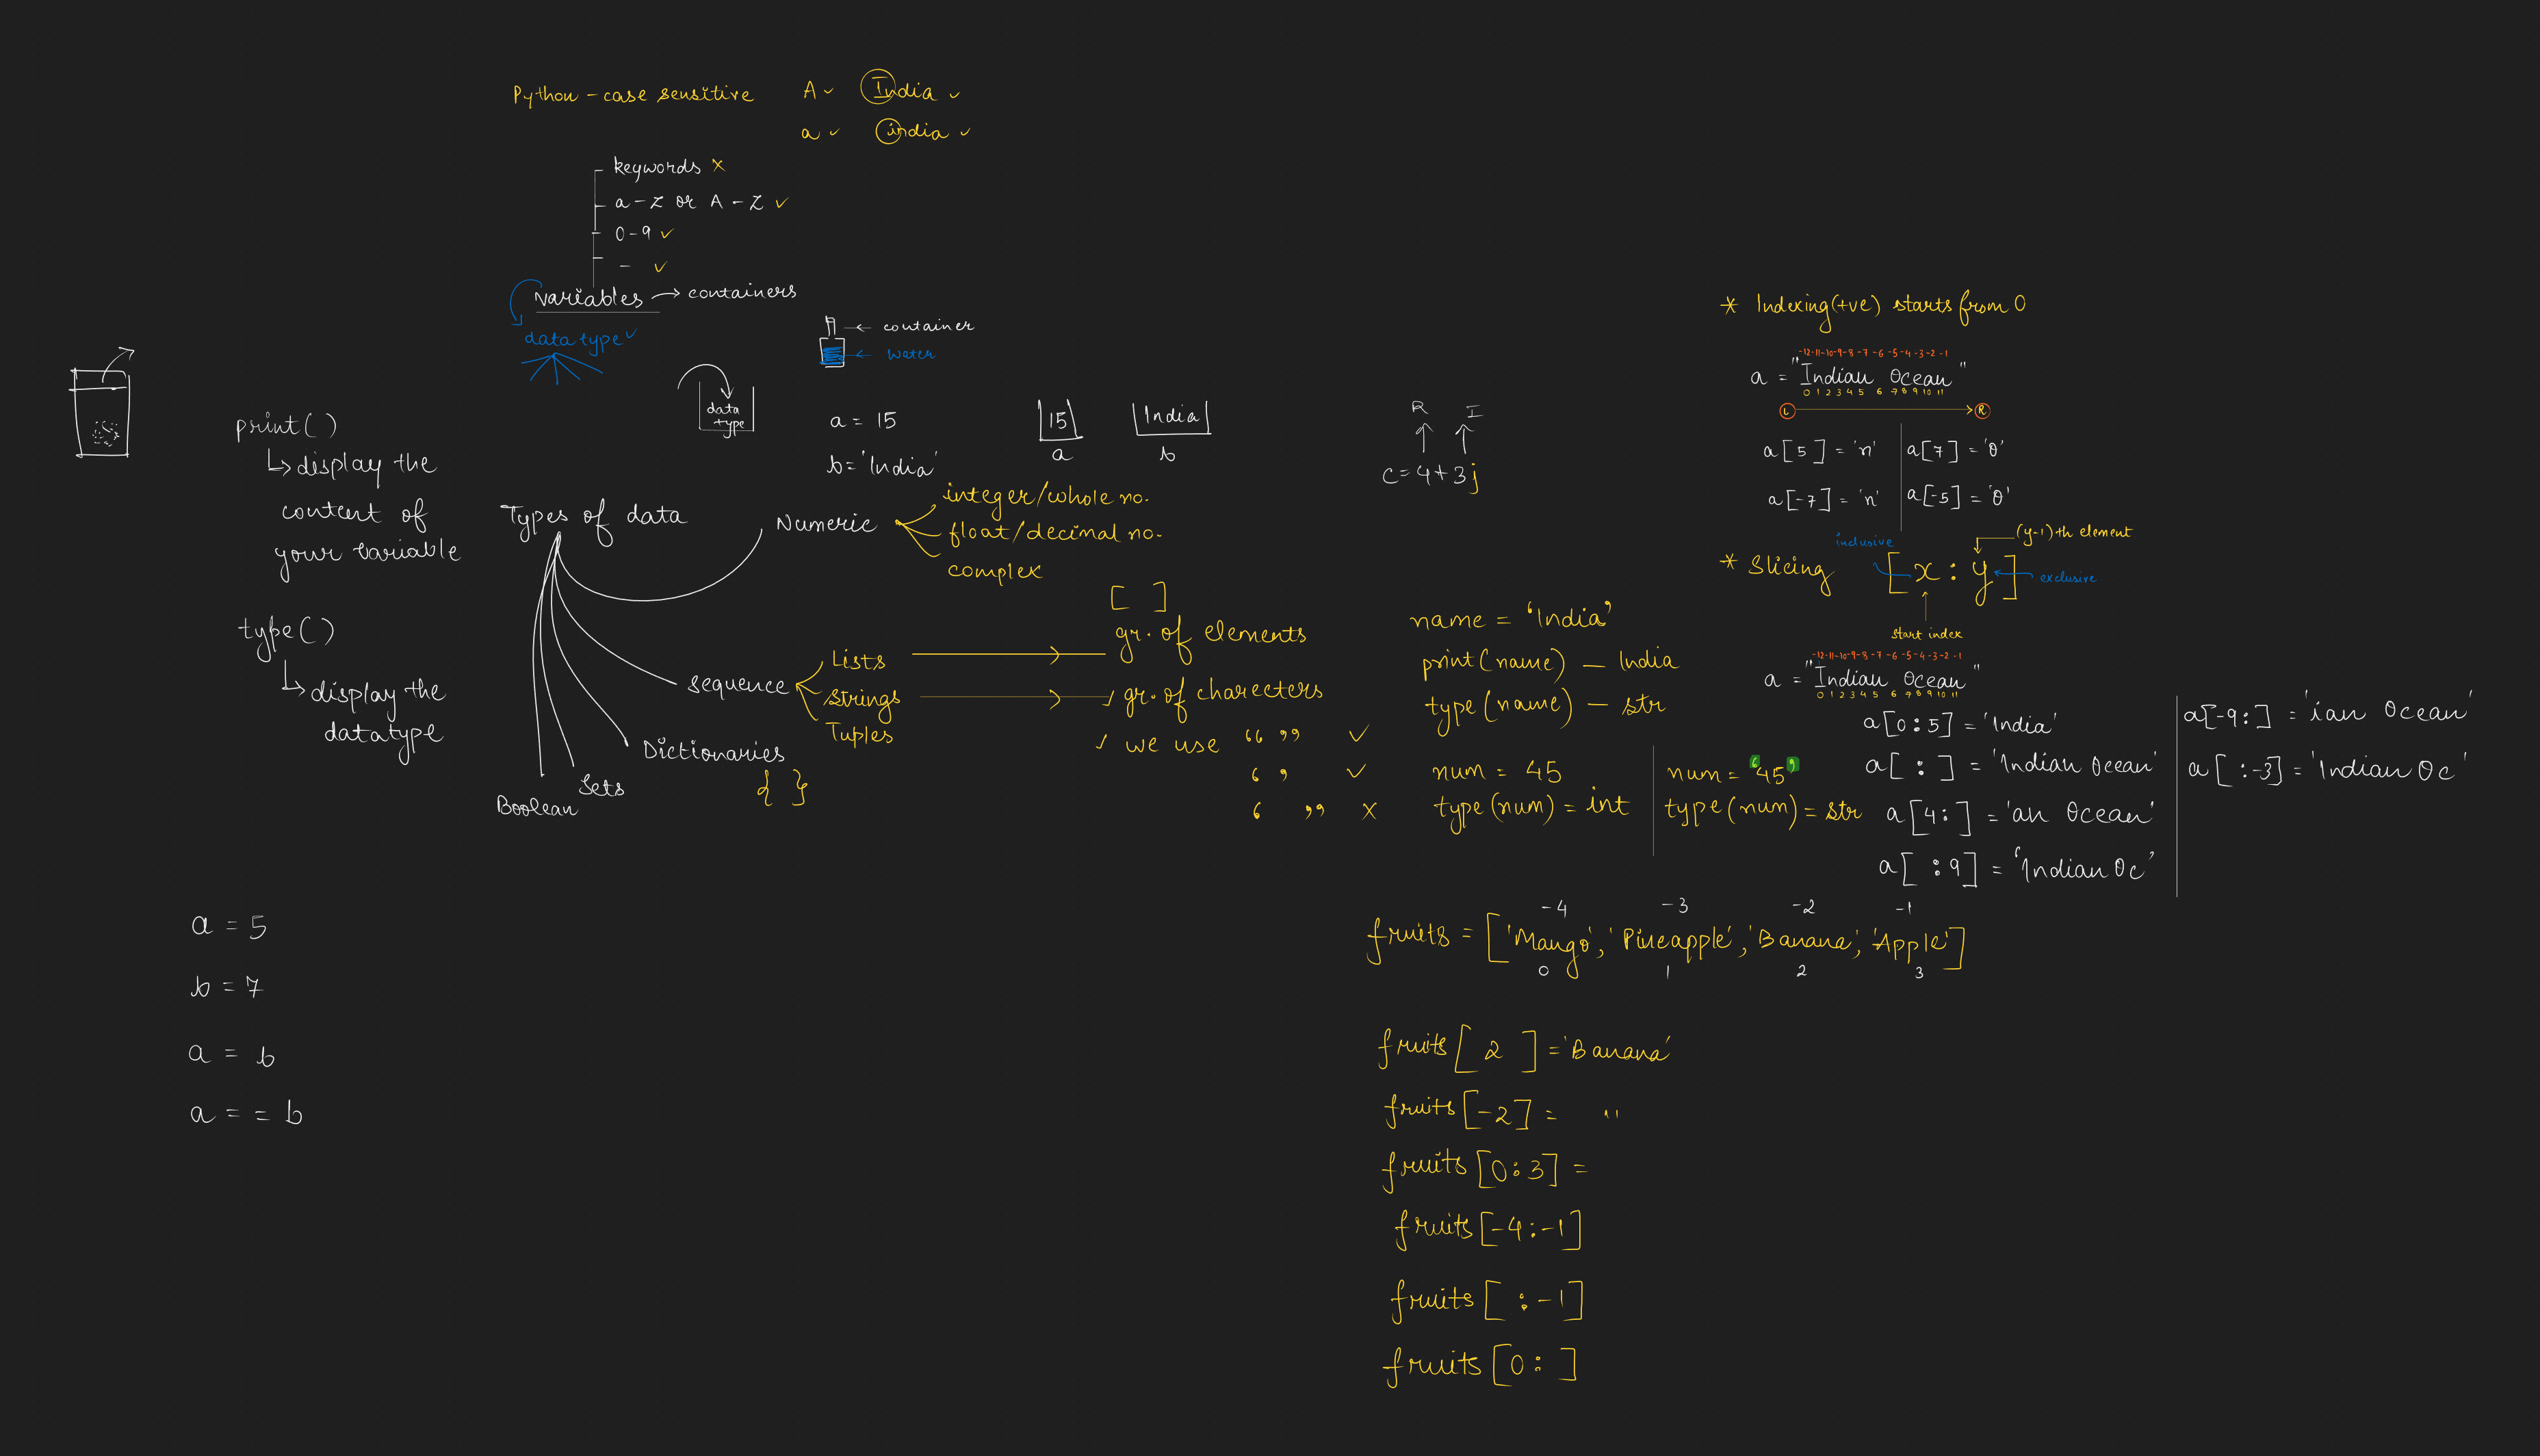 Python - case sensitive A ✓ India ✓
a ✓ india ✓
keywords ×
a - z or A - Z ✓
0 - 9 ✓
_ ✓
Variables → containers
data type ✓
← container
← water
data type
a = 15
b = 'India'
15
a
India
b
R I
c = 4 + 3j
print()
↳ display the
content of
your variable
type()
↳ display the
datatype
Types of data
Numeric
integer/whole no.
float/decimal no.
complex
sequence
Lists
strings
Tuples
[ ]
gr. of elements
✓ gr. of charecters
✓ we use “ ” ✓
‘ ’ ✓
‘ ” ×
Dictionaries
{ }
Sets
Boolean
name = 'India'
print(name) — India
type(name) — str
num = 45
type(num) = int
num = '45'
type(num) = str
* Indexing(+ve) starts from 0
-12 -11 -10 -9 -8 -7 -6 -5 -4 -3 -2 -1
a = "Indian Ocean"
0 1 2 3 4 5 6 7 8 9 10 11
L → R
a[5] = 'n'
a[7] = 'O'
a[-7] = 'n'
a[-5] = 'O'
(y-1)th element
inclusive
* Slicing [x : y]
exclusive
start index
-12 -11 -10 -9 -8 -7 -6 -5 -4 -3 -2 -1
a = "Indian Ocean"
0 1 2 3 4 5 6 7 8 9 10 11
a[0:5] = 'India'
a[ : ] = 'Indian Ocean'
a[4:] = 'an Ocean'
a[ :9] = 'Indian Oc'
a[-9:] = 'ian Ocean'
a[ :-3] = 'Indian Oc'
-4 -3 -2 -1
fruits = ['Mango', 'Pineapple', 'Banana', 'Apple']
0 1 2 3
fruits[ 2 ] = 'Banana'
fruits[-2] = "
fruits[0:3] =
fruits[-4:-1]
fruits[ :-1]
fruits[0: ]
a = 5
b = 7
a = b
a == b